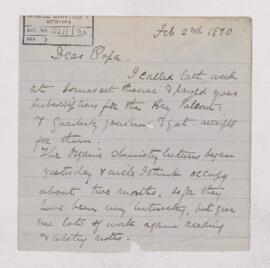 ARCHIVES
Feb 2nd 1890
Dear Papa.
I called last week
at Somerset House & payed your
subscriptions for the Ray
& Quarterly journal & got receipts
for them.
The Organic Chemistry lectures began
yesterday & will I think occupy
about two months. So far they
have been very interesting, but give
me lots of work again reading
& writing notes.